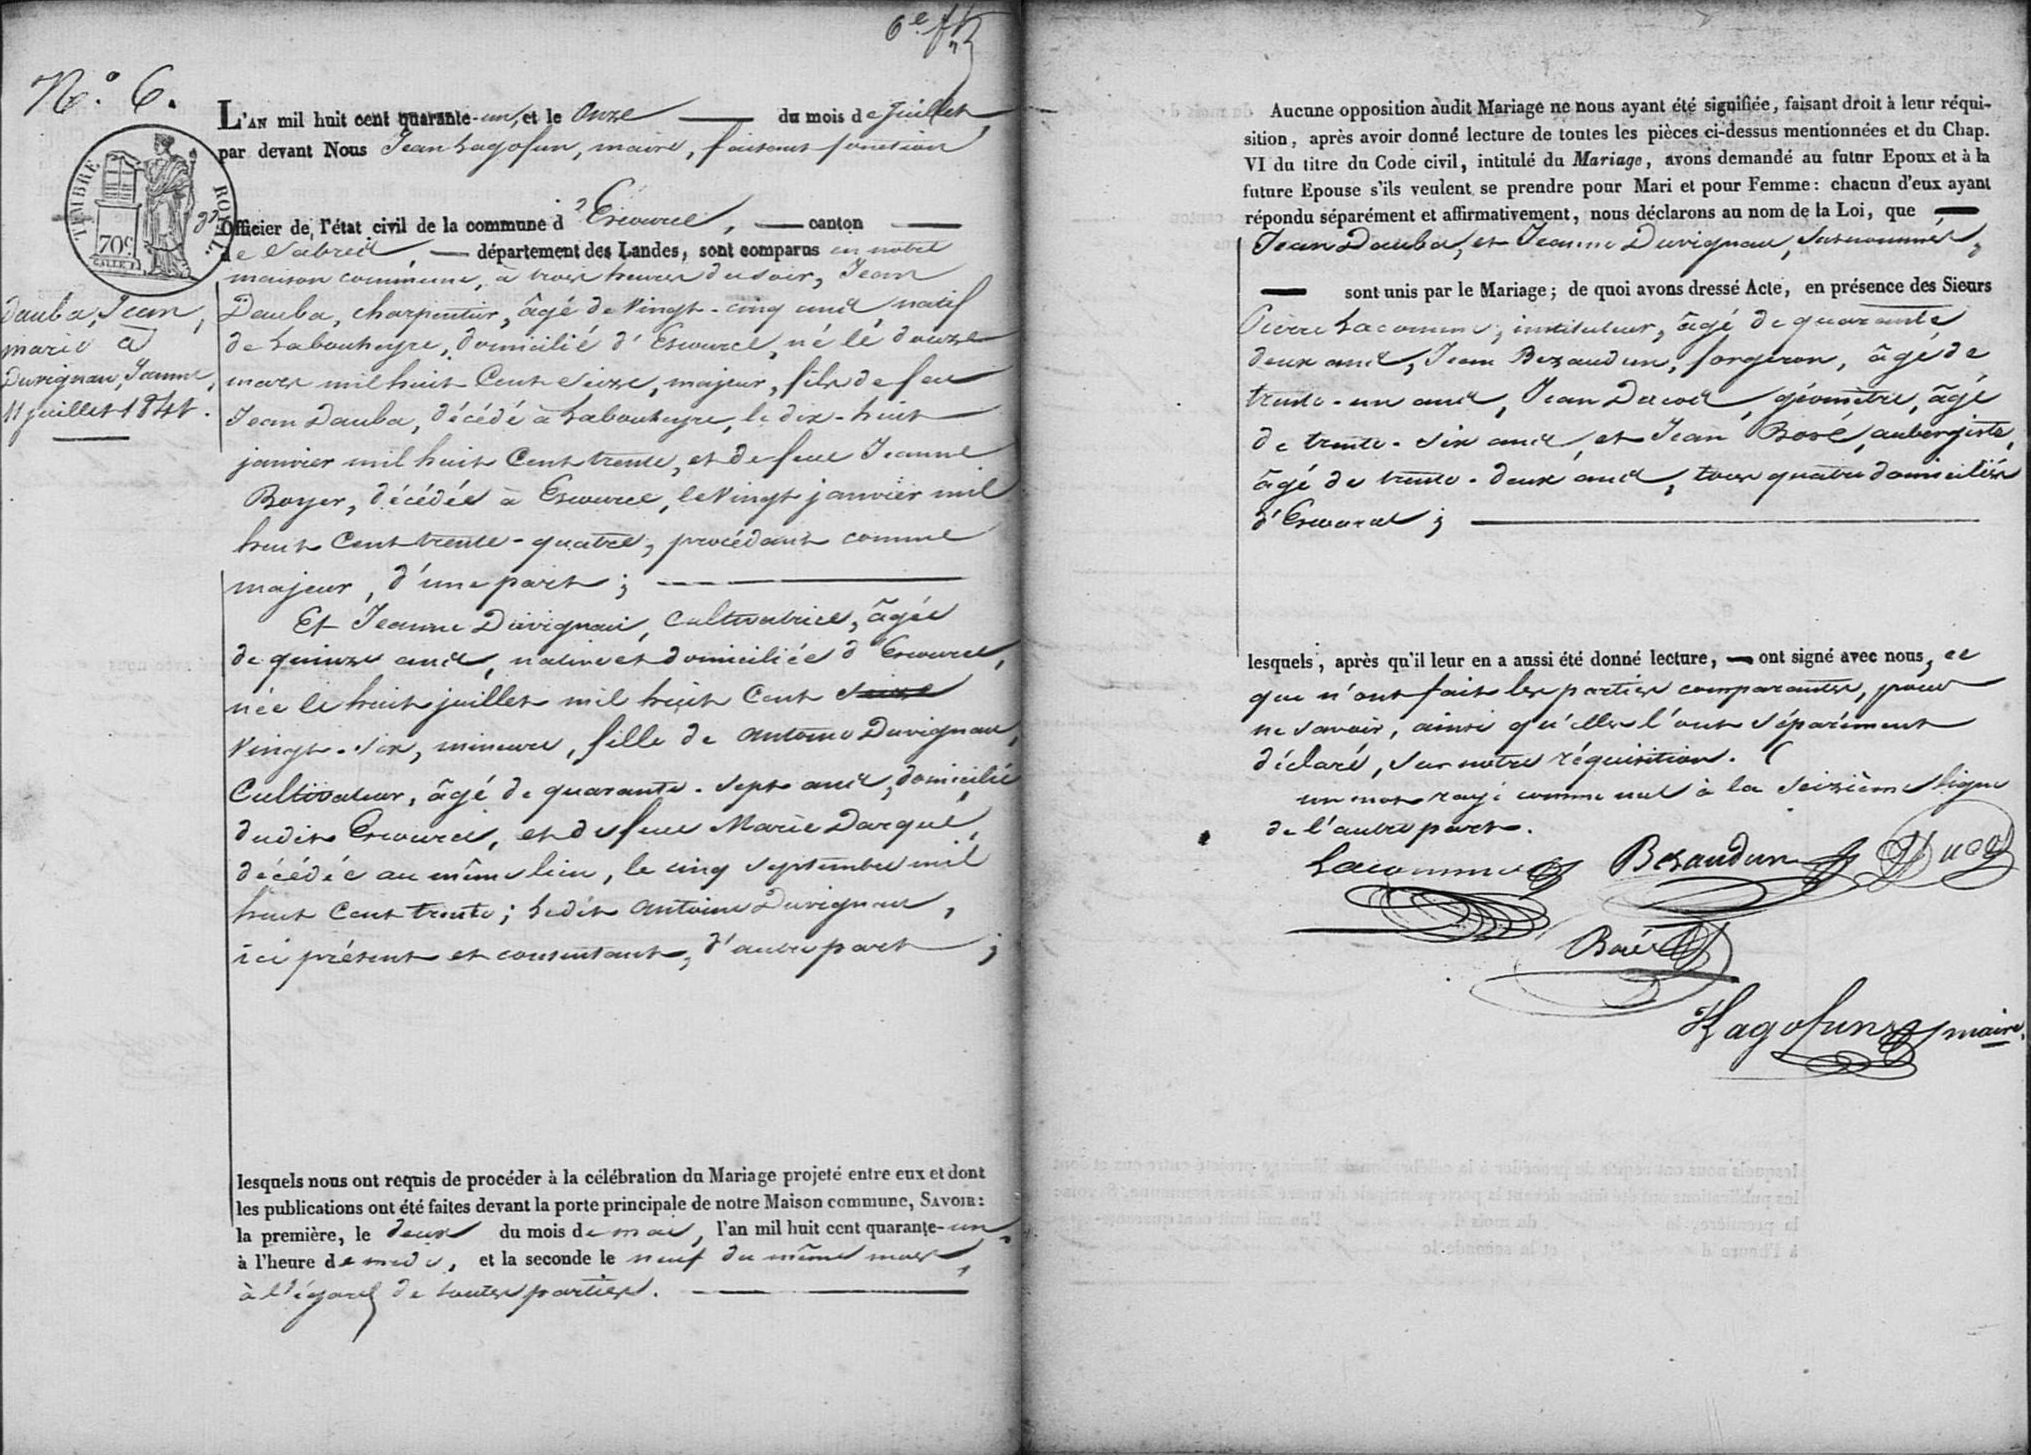 6e ft
N.° 6.
TIMBRE ROYAL
70c
L'AN mil huit cent quarante-un, et le onze du mois de juillet,
par devant Nous Jean Lagofun, maire, faisant fonction
d'
Officier de l'état civil de la commune d'Escource, canton
de Sabres, département des Landes, sont comparus en notre
maison commune, à trois heures du soir, Jean
Dauba, charpentier, âgé de Vingt-cinq ans natif
de Labouheyre, domicilié d'Escource, né le douze
mars mil huit Cent Seize, majeur, fils de feu
Jean Dauba, décédé à Labouheyre, le dix-huit
janvier mil huit Cent trente, et de feue Jeanne
Boyer, décédée à Escource, le Vingt janvier mil
huit Cent trente-quatre, procédant comme
majeur, d'une part ;
Dauba, Jean,
marié à
Duvignau, Jeanne,
11 juillet 1841.
Et Jeanne Duvignau, Cultivatrice, âgée
de quinze ans, native et domiciliée d'Escource,
née le huit juillet mil huit Cent Seize
Vingt-Six, mineure, fille de Antoine Duvignau,
Cultivateur, âgé de quarante-sept ans, domicilié
dudit Escource, et de feue Marie Darqué,
décédée au même lieu, le cinq septembre mil
huit Cent trente ; Ledit Antoine Duvignau,
ici présent et consentant, d'autre part ;
lesquels nous ont requis de procéder à la célébration du Mariage projeté entre eux et dont
les publications ont été faites devant la porte principale de notre Maison commune, SAVOIR :
la première, le deux du mois de mai, l'an mil huit cent quarante-un
à l'heure de midi, et la seconde le neuf du même mois,
à l'égard de toutes parties.
Aucune opposition audit Mariage ne nous ayant été signifiée, faisant droit à leur réqui-
sition, après avoir donné lecture de toutes les pièces ci-dessus mentionnées et du Chap.
VI du titre du Code civil, intitulé du Mariage, avons demandé au futur Epoux et à la
future Epouse s'ils veulent se prendre pour Mari et pour Femme : chacun d'eux ayant
répondu séparément et affirmativement, nous déclarons au nom de la Loi, que
Jean Dauba, et Jeanne Duvignau, surnommés,
sont unis par le Mariage ; de quoi avons dressé Acte, en présence des Sieurs
Pierre Lacomme, instituteur, âgé de quarante
deux ans, Jean Bezaudun, forgeron, âgé de
trente-un ans, Jean Ducos, géomètre, âgé
de trente-six ans, et Jean Boué, aubergiste,
âgé de trente-deux ans, tous quatre domiciliés
d'Escource ;
lesquels, après qu'il leur en a aussi été donné lecture, ont signé avec nous, ce
que n'ont fait les parties comparantes, pour
ne savoir, ainsi qu'elles l'ont séparément
déclaré, sur notre réquisition.
un mot rayé comme nul à la seizième ligne
de l'autre part.
Lacomme Bezaudun Ducos
Boué
Lagofun maire.